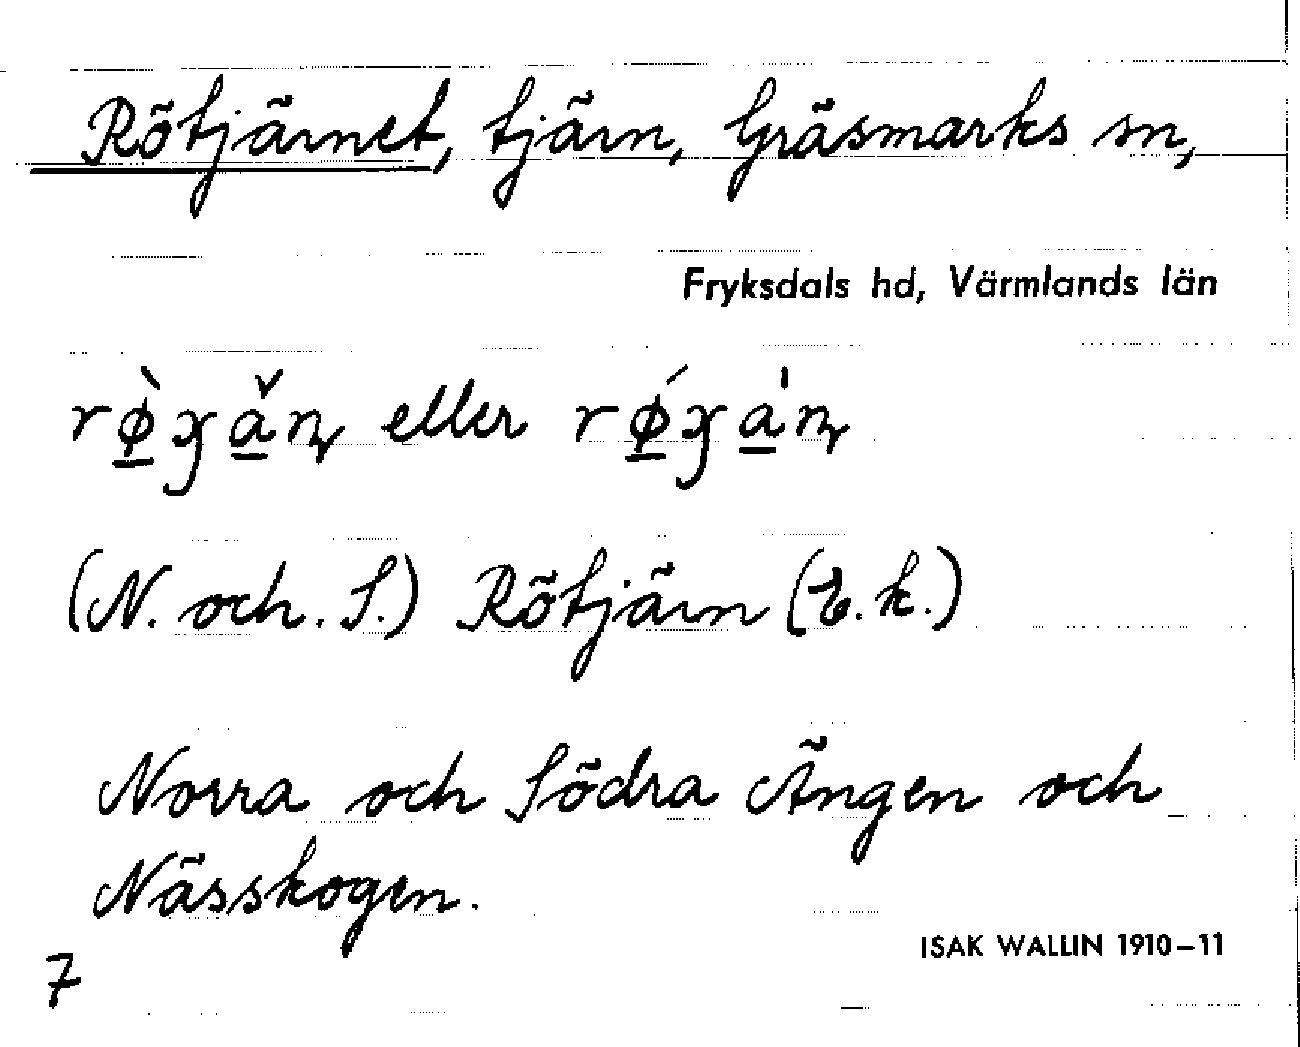 Rötjärnet, tjärn, Gräsmarks sn,
Fryksdals hd, Värmlands län
eller
(N. och. S.) Rötjärn (E.k.)
Norra och Södra Ängen och
Nässkogen.
ISAK WALLIN 1910–11
7